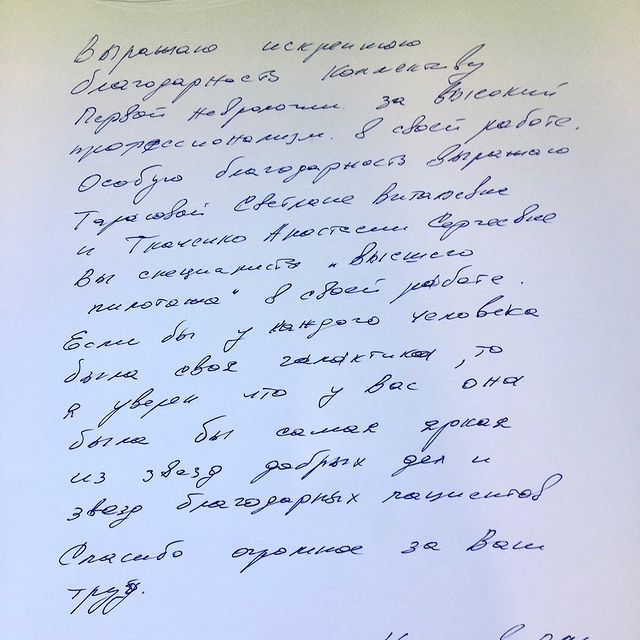 Выражаю искреннюю
благодарность коллективу
Первой неврологии за высокий
профессионализм в своей работе.
Особую благодарность выражаю
Тарасовой Светлане Витальевне
и Ткаченко Анастасии Сергеевне
Вы специалисты „высшего
пилотажа" в своей работе.
Если бы у каждого человека
была своя галактика, то
я уверен что у Вас она
была бы самая яркая
из звезд добрых дел и
звезд благодарных пациентов
Спасибо огромное за Ваш
труд.